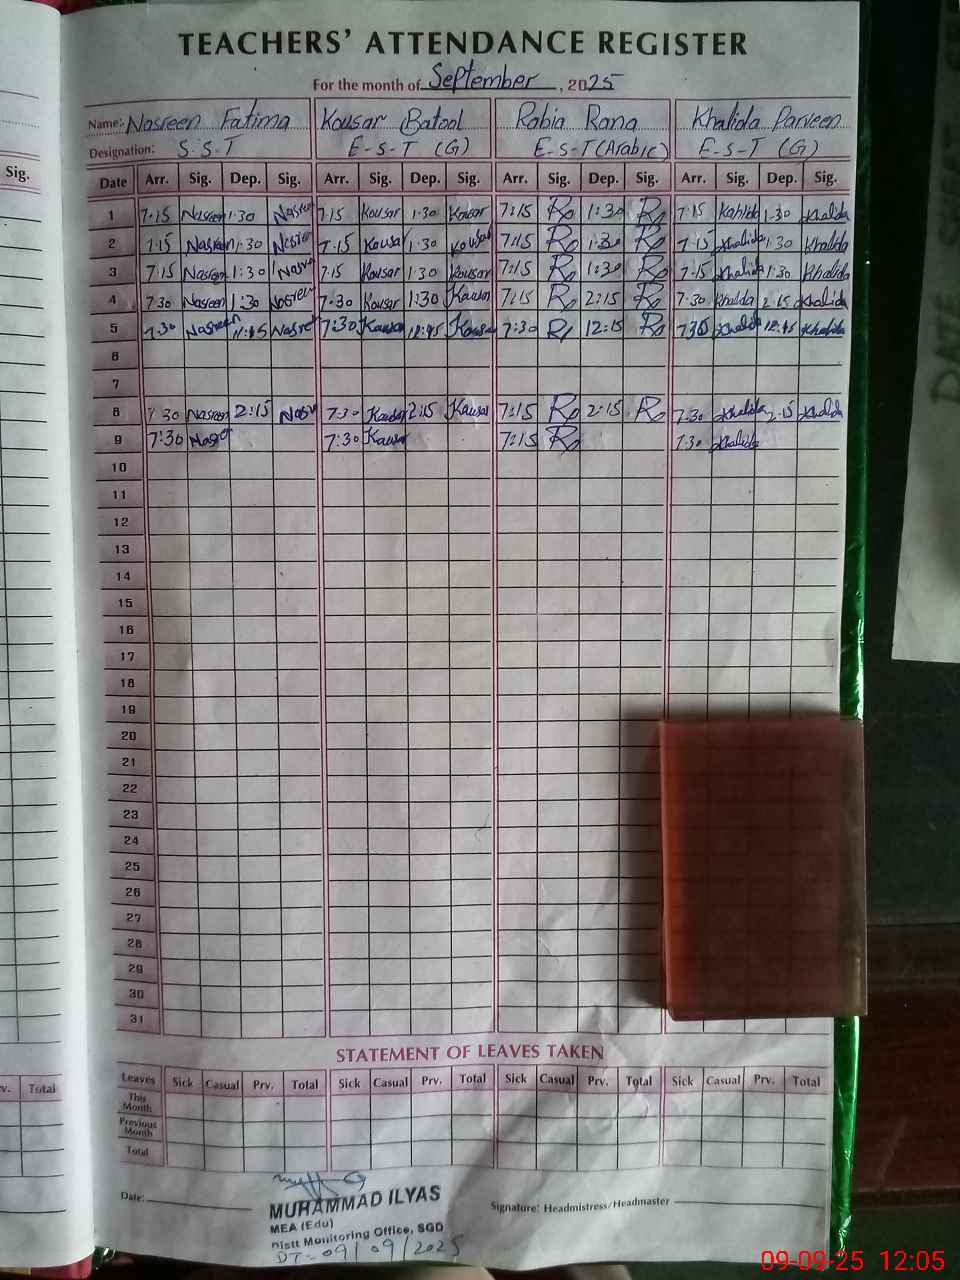 TEACHERS' ATTENDANCE REGISTER
For the month of September, 2025
Name: Nasreen Fatima Kousar Batool Rabia Rana Khalida Parveen
Designation: S.S.T E-S-T (G) E-S-T (Arabic) E-S-T (G)
Sig.
Date Arr. Sig. Dep. Sig. Arr. Sig. Dep. Sig. Arr. Sig. Dep. Sig. Arr. Sig. Dep. Sig.
1 7:15 Nasreen 1:30 Nasreen 7:15 Kousar 1:30 Kousar 7:15 1:30 7:15 Kahlida 1:30 Khalida
2 7:15 Nasreen 1:30 Nasreen 7:15 Kousar 1:30 Kousar 7:15 1:30 7:15 Khalida 1:30 Khalida
3 7:15 Nasreen 1:30 7:15 Kousar 1:30 Kousar 7:15 1:30 7:15 Khalida 1:30 Khalida
4 7:30 Nasreen 1:30 Nasreen 7:30 Kousar 1:30 Kousar 7:15 2:15 7:30 Khalda 2:15 Khalida
5 7:30 Nasreen Nasre 7:30 Kousar 12:45 Kousar 7:30 12:15 7:30 Khalida 12:45 Khalida
6
7
8 7:30 Nasreen 2:15 7:30 Kousar 2:15 Kousar 7:15 2:15 7:30 Khalida 2:15 Khalida
9 7:30 7:30 Kousar 7:15 7:30 Khalida
10
11
12
13
14
15
16
17
18
19
20
21
22
23
24
25
26
27
28
29
30
31
STATEMENT OF LEAVES TAKEN
v. Total
Leaves Sick Casual Prv. Total Sick Casual Prv. Total Sick Casual Prv. Total Sick Casual Prv. Total
This Month
Previous Month
Total
Date:
Signature: Headmistress/Headmaster
MUHAMMAD ILYAS
MEA (Edu)
Distt Monitoring Office, SGD
DT-09/09/2025
09-09-25 12:05